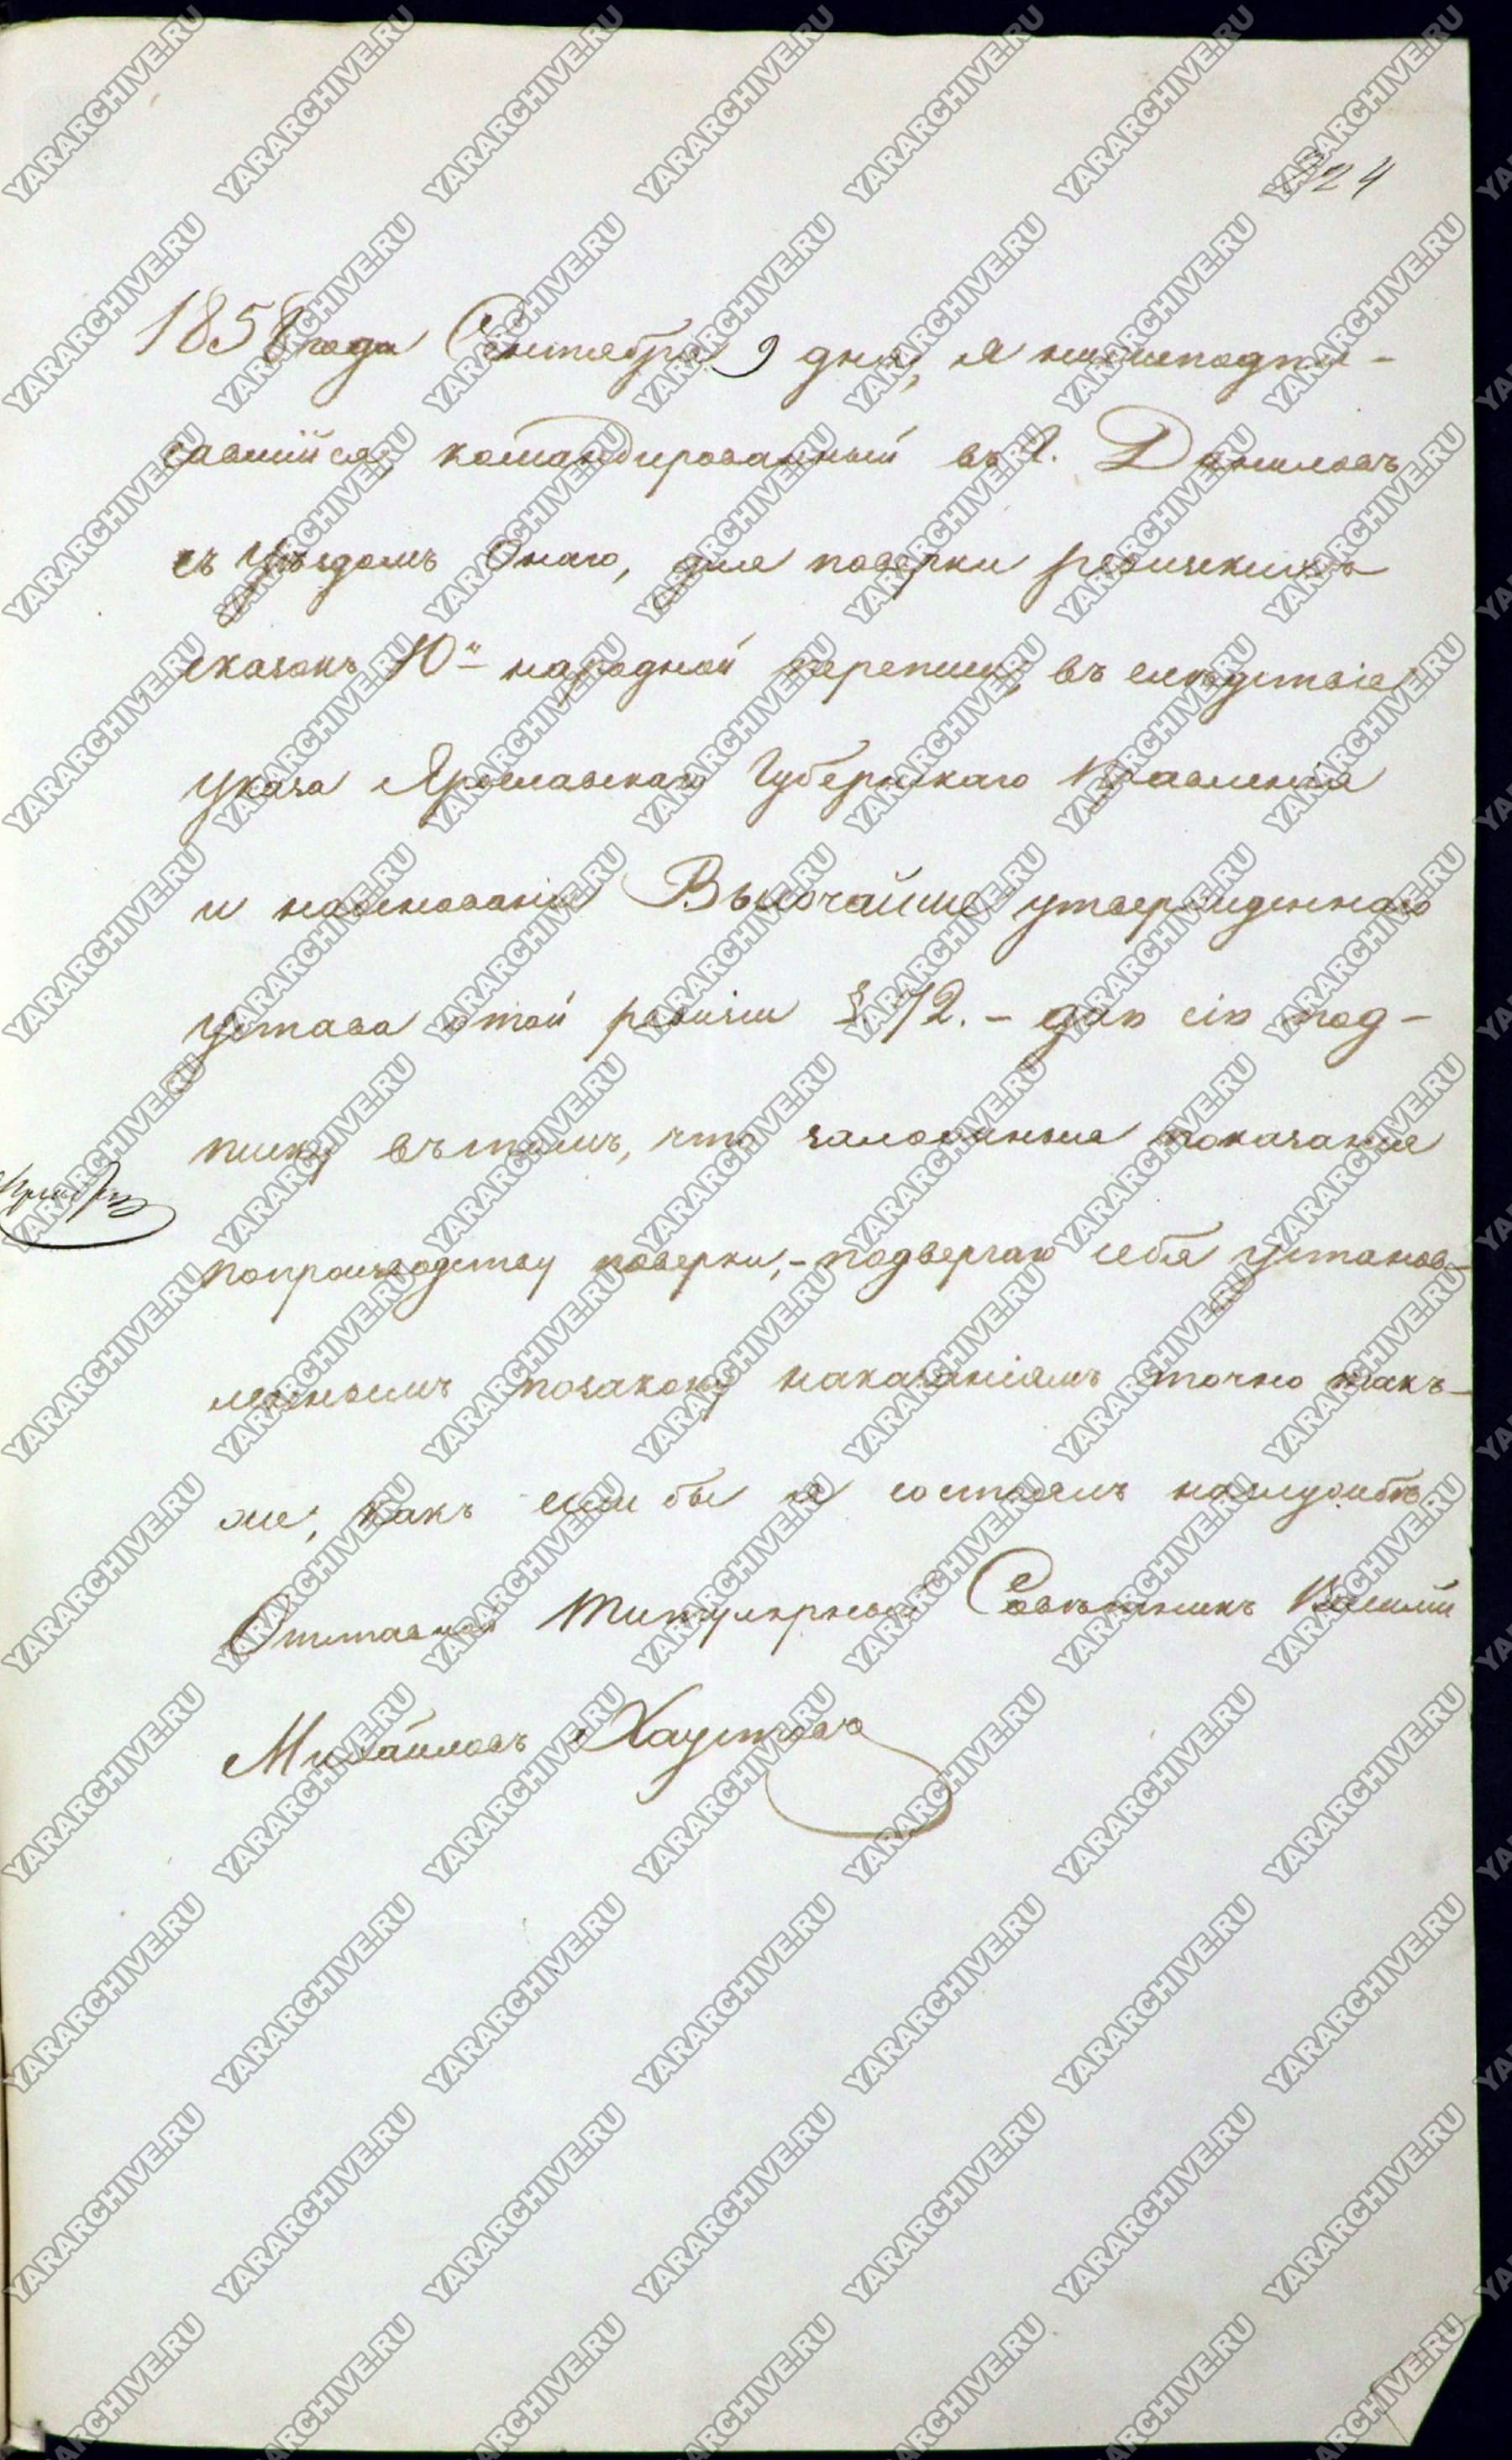 224
1858 года Сентября 9 дня, я нижеподпи-
савшійся, командированный въ г. Даниловъ
съ Уѣздомъ Онаго, для поверки ревизскихъ
сказокъ 10й народной переписи, въ слѣдствіе
указа Ярославскаго Губернскаго Правленія
и наоснованіи Высочайше утвержденнаго
устава отой ревизіи §. 72. - даю сію под-
писку въ томъ, что заложныя показанія
попроизводству поверки, - подвергаю себя установ-
леннымъ позакону наказаніямъ точно такъ-
же, какъ если бы я состоялъ наслужбѣ
Отставной Титулярный Совѣтникъ Василій
Михайловъ Хаустовъ
YARARCHIVE.RU